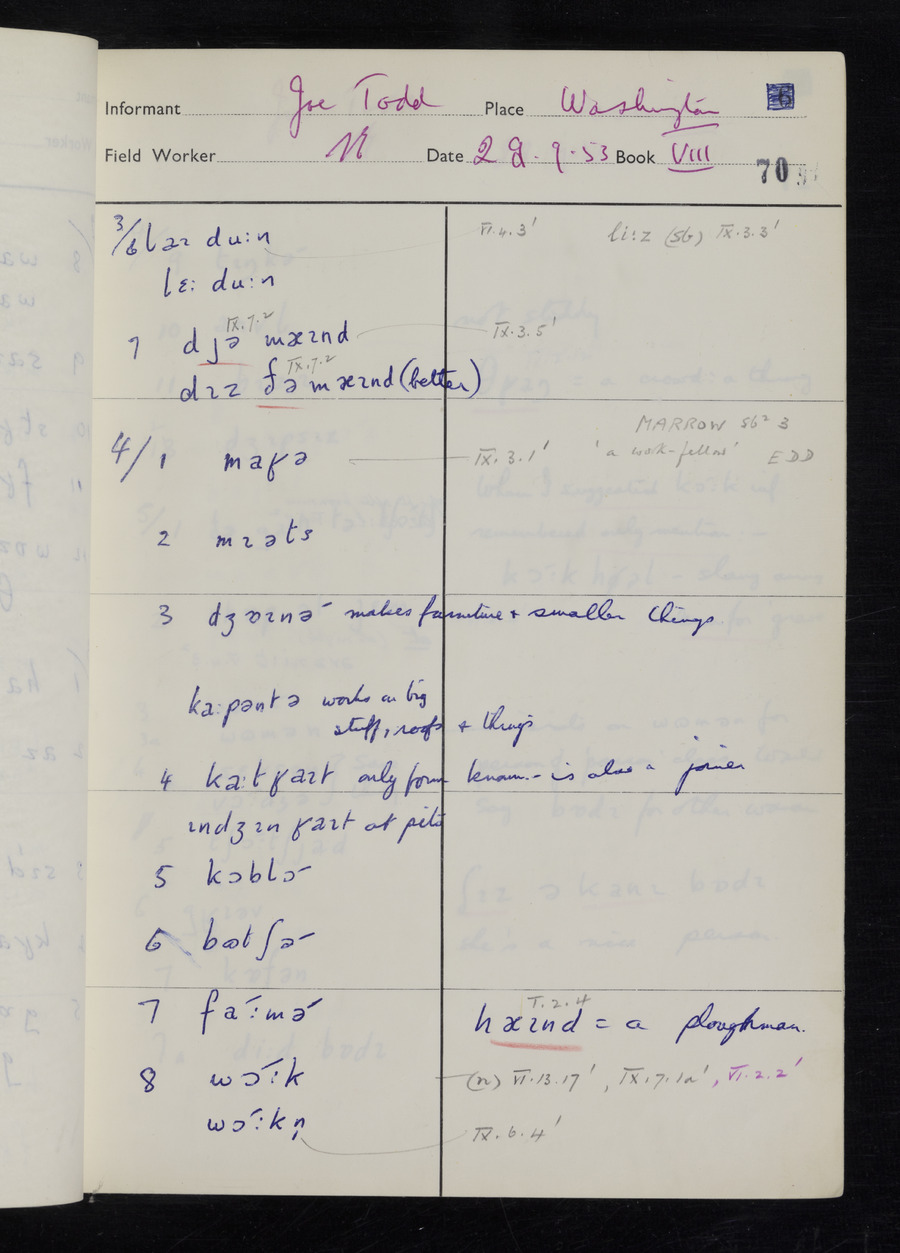 Informant Joe Todd Place Washington 6
Field Worker Date 29.9.53 Book VIII 70
3/6 laɪ duːn VI.4.3' liːz (Sb) IX.3.3'
lɛː duːn
IX.7.2
7 d jə mæɪnd IX.3.5'
IX.7.2
dɪz ðə mæɪnd (better)
MARROW sb² 3
4/1 maʁə IX.3.1' 'a work-fellow' EDD
2 mɪəts
3 dʒɒɪnə makes furniture + smaller things
kaːpəntə works on big
stuff, roofs + things
4 kaːtʁaɪt only form known - is also a joiner
ɪndʒɪnʁaɪt at pits
5 kɔblɔ
6 bœtʃə
I.2.4
7 faːmə hæɪnd = a ploughman.
8 wɔːk (n) VI.13.17', IX.7.1a', VI.2.2'
wɔːkn̩ IX.6.4'